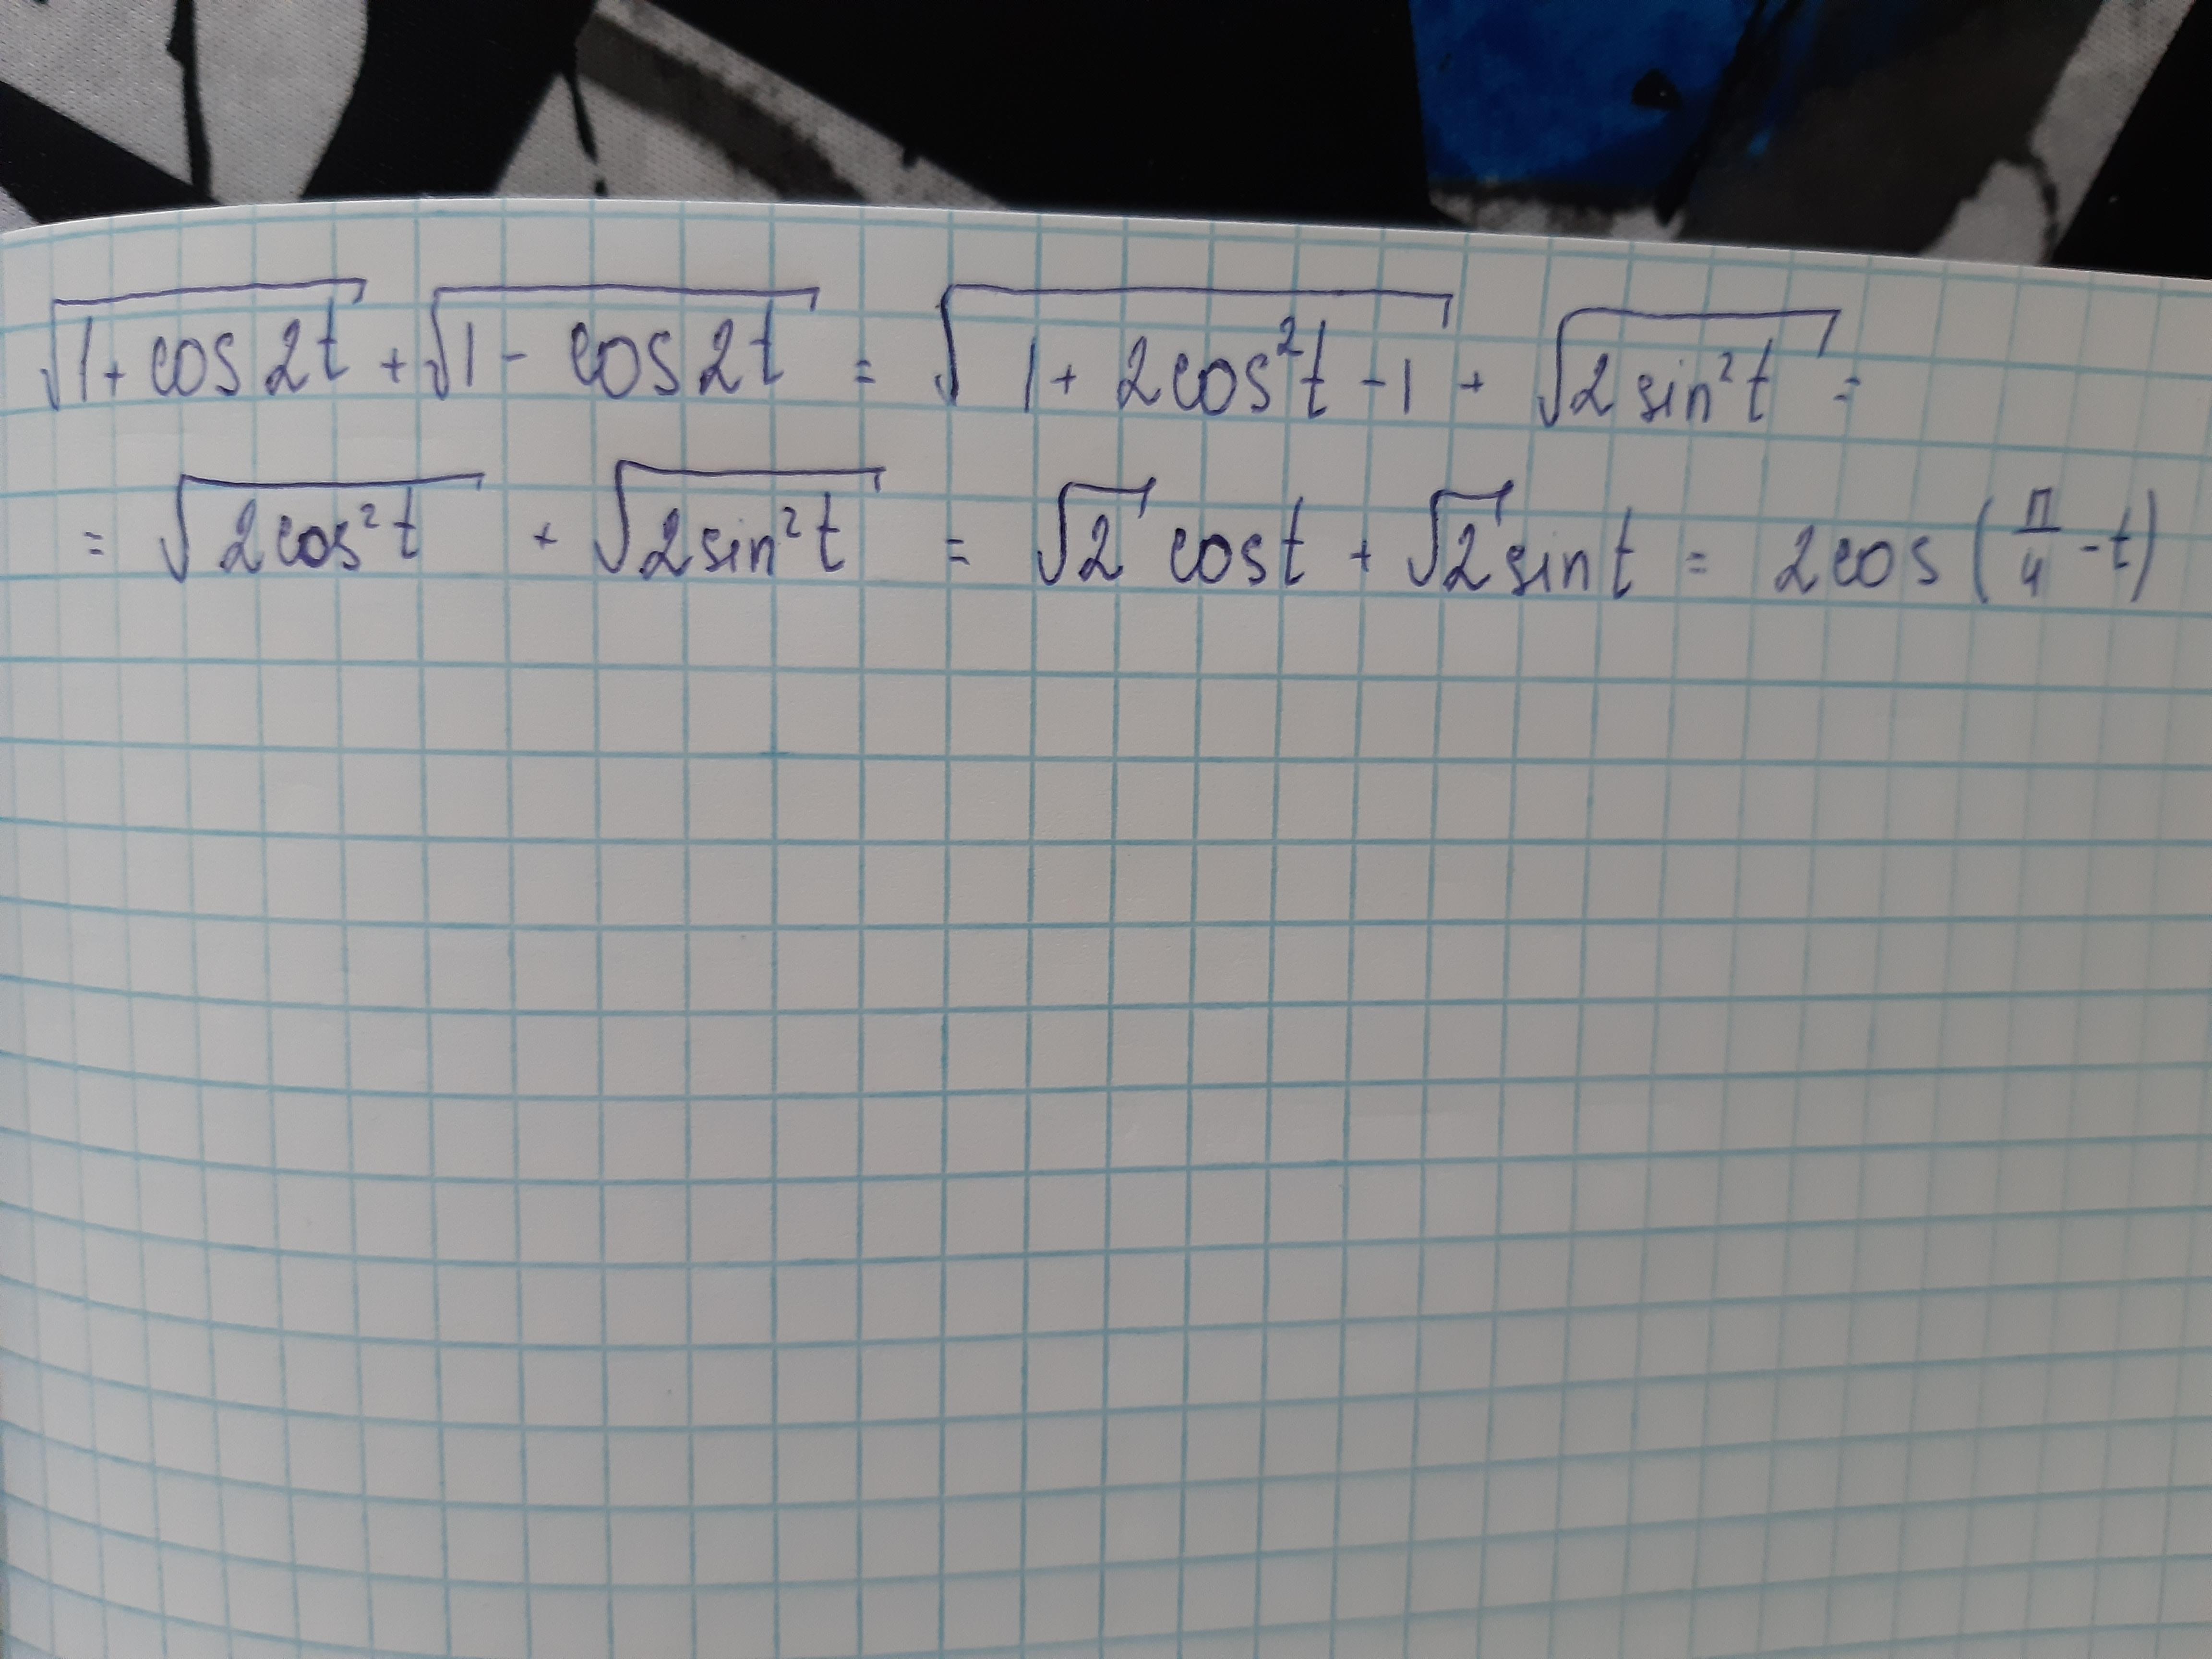 √(1 + cos 2t) + √(1 - cos 2t) = √(1 + 2cos²t - 1) + √(2 sin²t) =
= √(2cos²t) + √(2sin²t) = √2 cos t + √2 sin t = 2cos(π/4 - t)